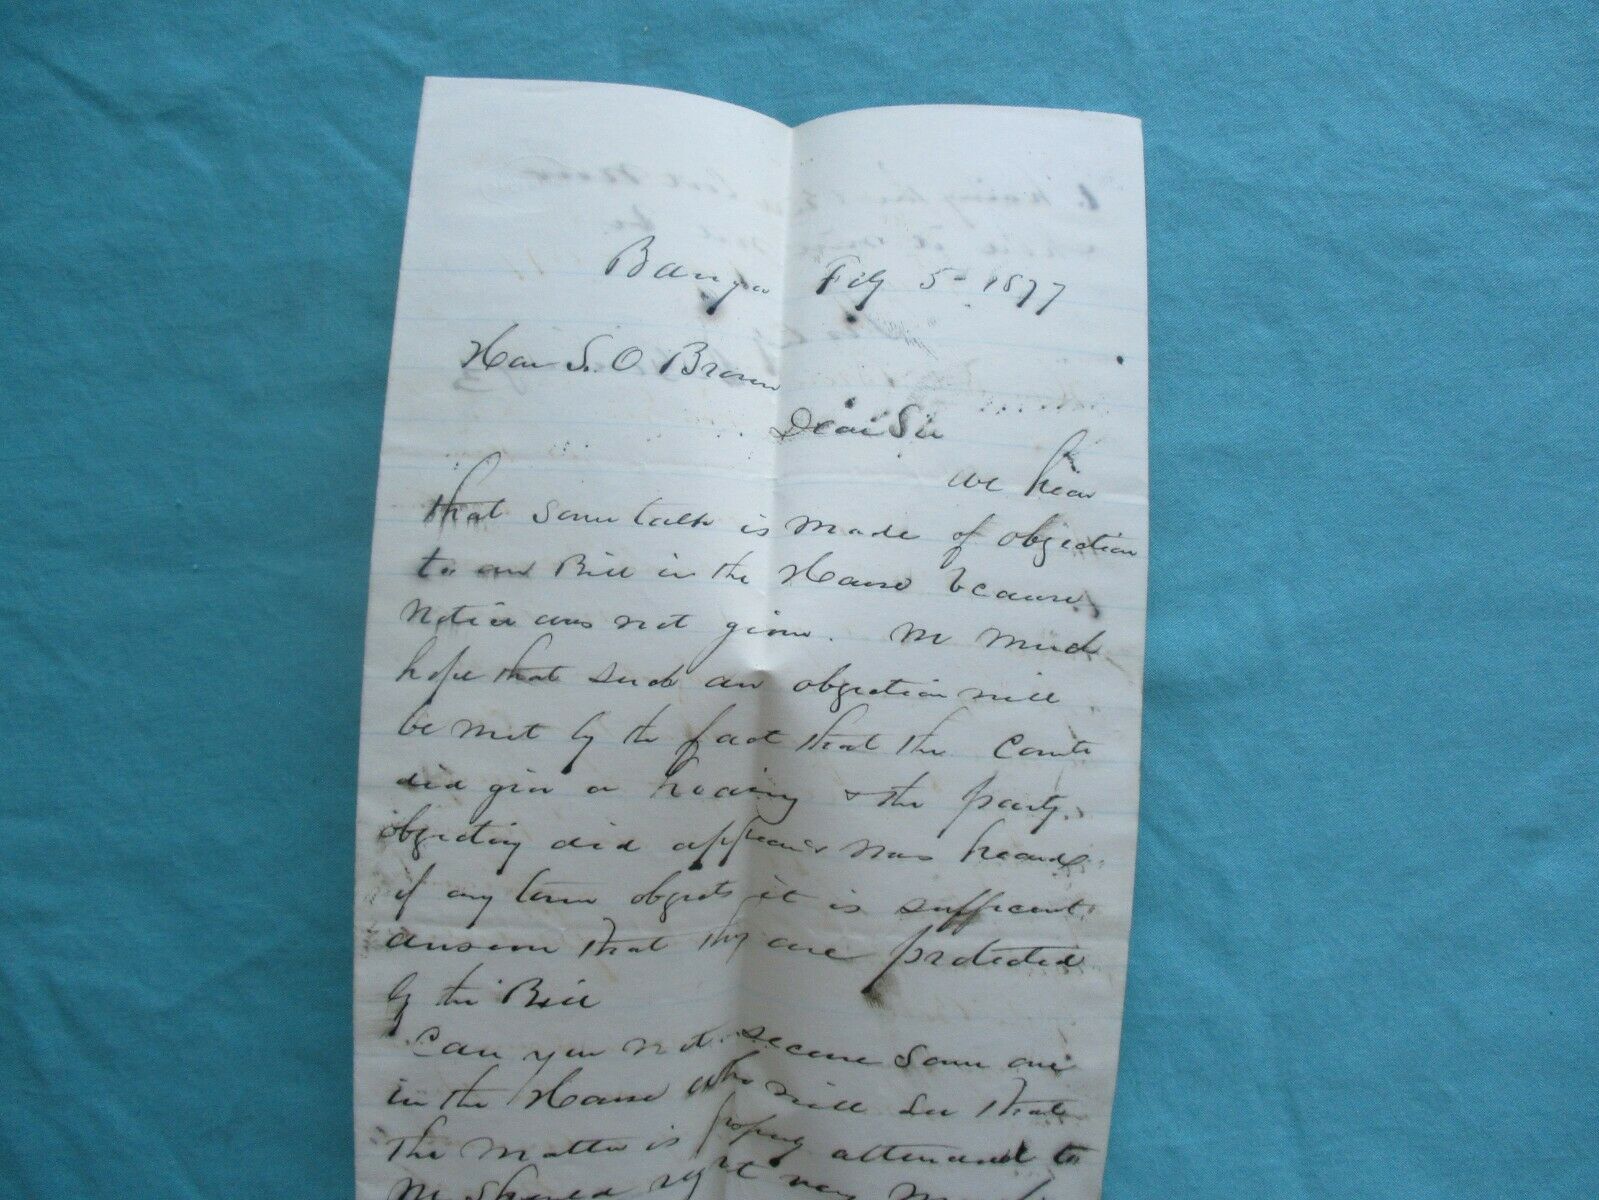 Bangor Feby 5th 1877
Hon S. O Brown
Dear Sir
we hear
that some talk is made of objection
to our Bill in the House because
notice was not given. We much
hope that such an objection will
be met by the fact that the Comte
did give a hearing & the party
objecting did appear & was heard
if any town objects it is sufficient
answer that they are protected
by the Bill
Can you not secure some one
in the House who will see that
the matter is properly attended to
We should regret very much